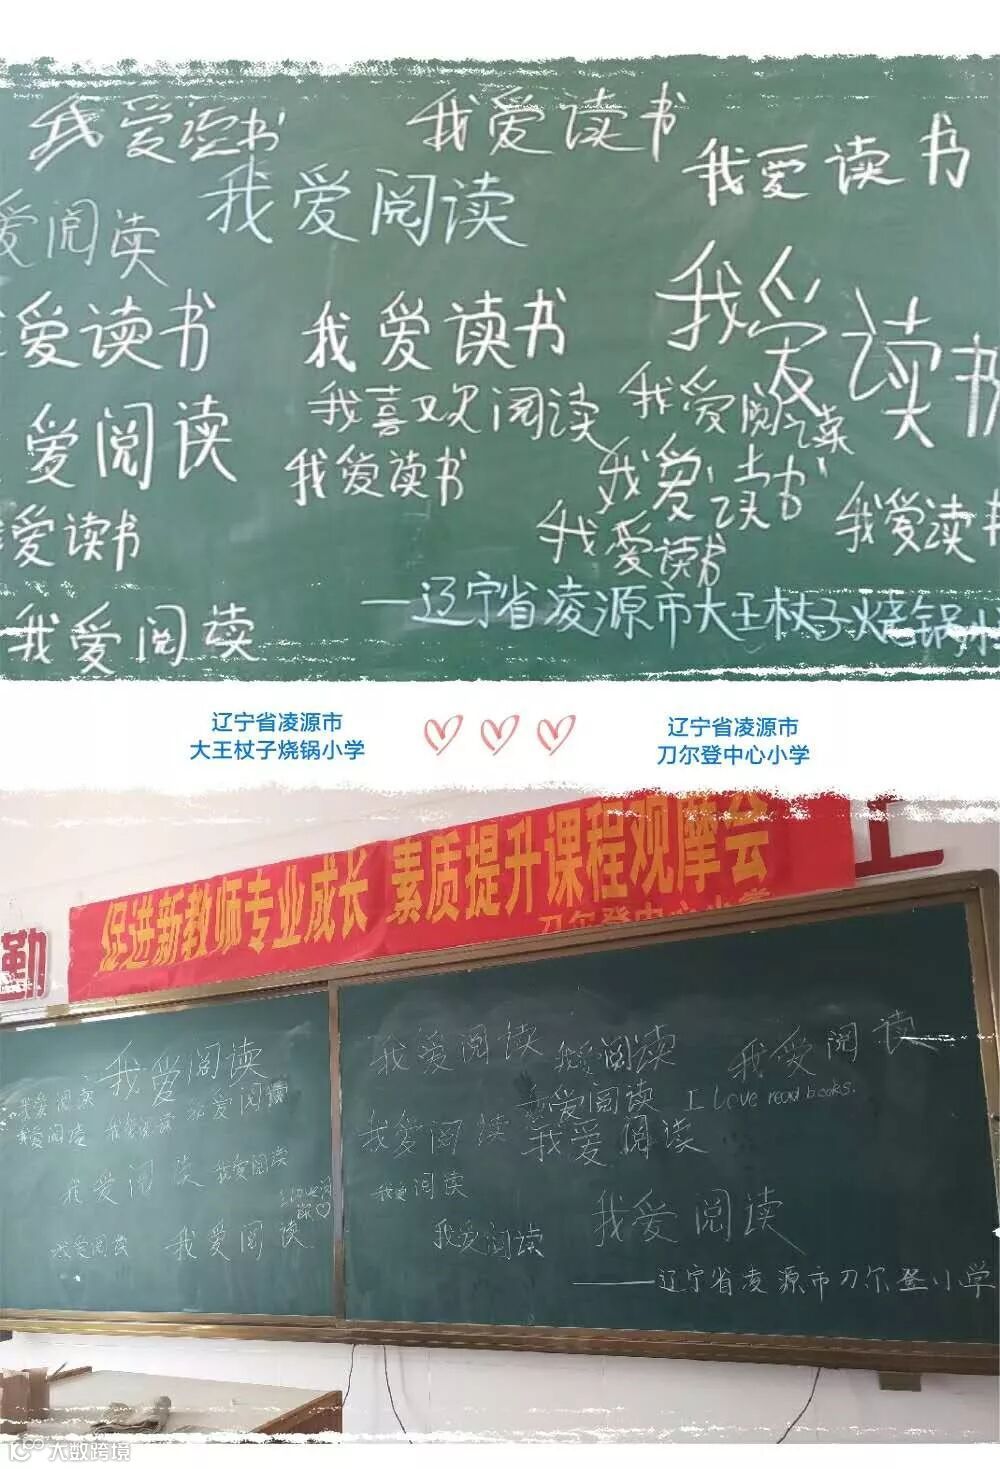 我爱读书
我爱读书
我爱读书
爱阅读
我爱阅读
爱读书
我爱读书
我爱读书
我喜欢阅读
我爱阅读
爱阅读
我爱读书
我爱读书
爱读书
我爱读书
我爱读书
我爱阅读
—辽宁省凌源市大王杖子烧锅小
辽宁省凌源市
大王杖子烧锅小学
辽宁省凌源市
刀尔登中心小学
促进新教师专业成长 素质提升课程观摩会
刀尔登中心小学
勤
我爱阅读
我爱阅读
我爱阅读
我爱阅读
我爱阅读
我爱阅读
我爱阅读
我爱阅读
我爱阅读
我爱阅读
我爱阅读
我爱阅读
我爱阅读
I Love read books.
我爱阅读
我爱阅读
我爱阅读
我爱阅读
我爱阅读
——辽宁省凌源市刀尔登小学
大数跨境